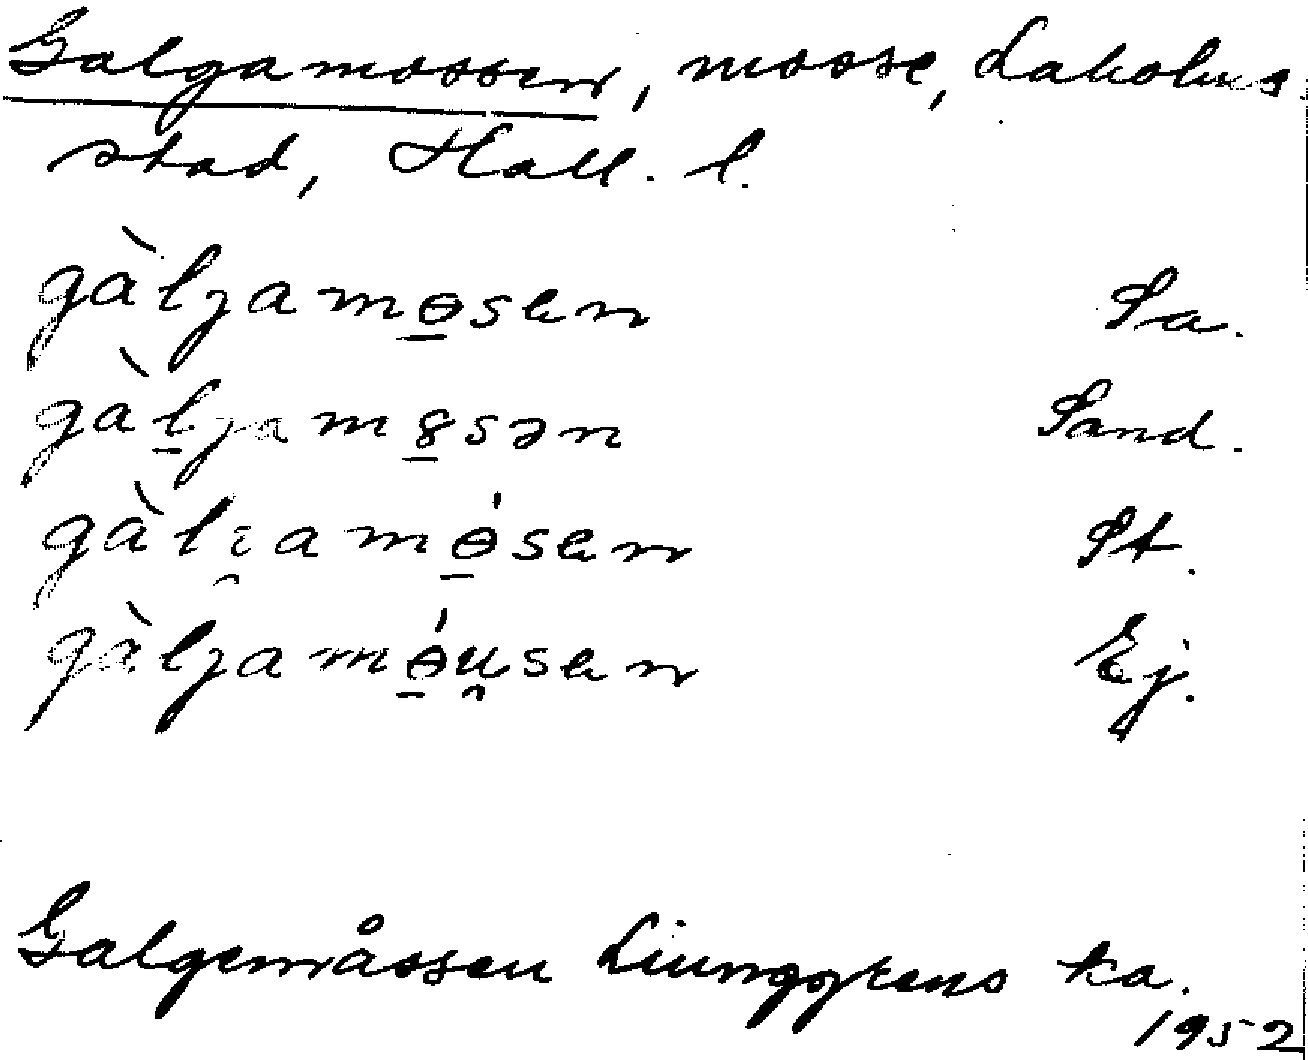 Galgamossen, mosse, Laholms
stad, Hall. l.
gàljamɵ̲sen Sa.
gàl̲jam8̲sən Sand.
gàli̯amɵ̲́sen St.
gàljamɵ̲́u̯sen Ej.
Galgemåssen Liunggrens ka.
1952